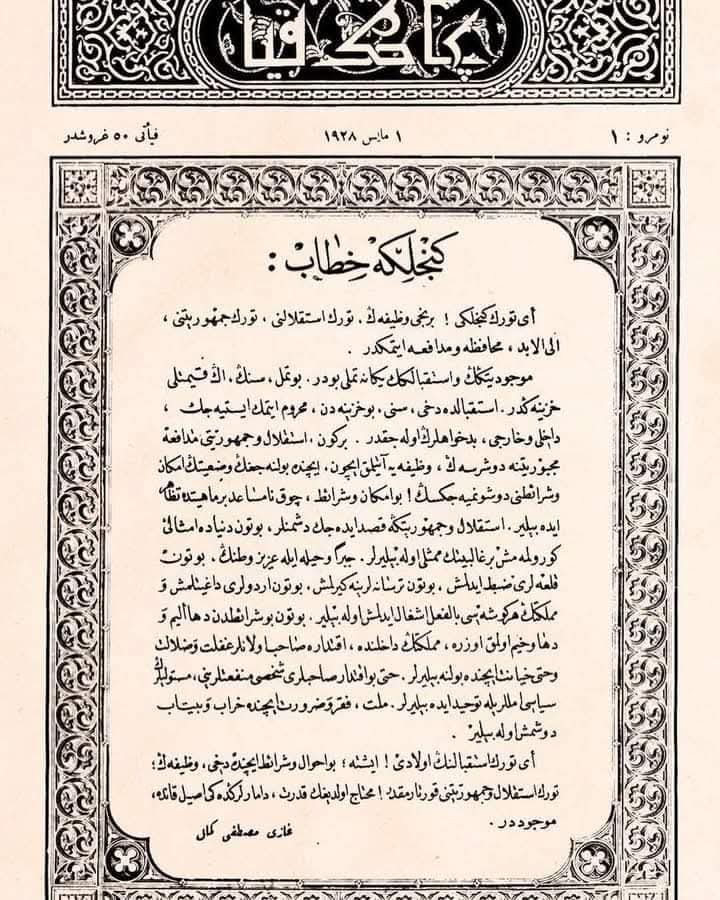 نومرو : ١
١ مايس ١٩٢٨
فيأتى ٥٠ غروشدر
كنجلكه خطاب :
أى تورك كنجلكى ! برنجى وظيفه‌ڭ ، تورك استقلالنى ، تورك جمهوريتنى ،
الى الابد ، محافظه ومدافعه ايتمكدر .
موجوديتكڭ واستقبالكڭ يكانه تملى بودر . بوتمل ، سنڭ ، اڭ قيمتلى
خزينه‌كدر . استقبالده دخى ، سنى ، بوخزينه‌دن ، محروم ايتمك ايسته‌يه‌جك ،
داخلى وخارجى ، بدخواهلرڭ اوله‌جقدر . بركون ، استقلال وجمهوريتى مدافعه
مجبوريتنه دوشرسه‌ڭ ، وظيفه‌يه آتيلمق ايچون ، ايچنده بولنه‌جغڭ وضعيتڭ امكان
وشرائطنى دوشونميه‌جكسڭ ! بوامكان وشرائط ، چوق نامساعد برماهيتده تظاهر
ايده‌بيلير . استقلال وجمهوريتكه قصد ايده‌جك دشمنلر ، بوتون دنياده امثالى
كورولمه‌مش برغالبيتڭ ممثلى اوله‌بيليرلر . جبراً وحيله ايله عزيز وطنڭ ، بوتون
قلعه‌لرى ضبط ايدلمش ، بوتون ترسانه‌لرينه كيرلمش ، بوتون اردولرى داغيتلمش و
مملكتڭ هركوشه‌سى بالفعل اشغال ايدلمش اوله‌بيلير . بوتون بوشرائطدن دها اليم و
دها وخيم اولمق اوزره ، مملكتڭ داخلنده ، اقتداره صاحب اولانلر غفلت وضلالت
وحتى خيانت ايچنده بولنه‌بيليرلر . حتى بواقتدار صاحبلرى شخصى منفعتلرينى ، مستوليلرڭ
سياسى امللريله توحيد ايده‌بيليرلر . ملت ، فقر وضرورت ايچنده خراب وبيتاب
دوشمش اوله‌بيلير .
أى تورك استقبالنڭ اولادى ! ايشته ؛ بواحوال وشرائط ايچنده دخى ، وظيفه‌ڭ ؛
تورك استقلال وجمهوريتنى قورتارمقدر ! محتاج اولديغڭ قدرت ، دامارلركده‌كى اصيل قانده ،
موجوددر .
غازى مصطفى كمال